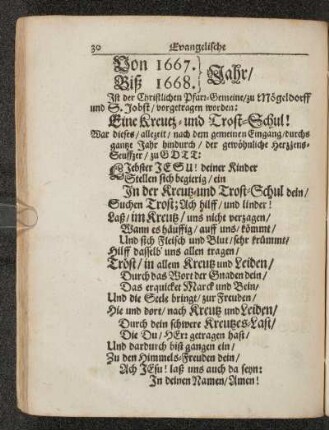 30 Evangelische
Von 1667.
Biß 1668. } Jahr/
Ist der Christlichen Pfarr-Gemeine/zu Mögeldorff
und S. Jobst/ vorgetragen worden:
Eine Kreutz- und Trost-Schul!
War dieses/ allezeit/ nach dem gemeinen Eingang/durchs
gantze Jahr hindurch/ der gewöhnliche Hertzens-
Seufftzer/ zu GOTT:
Liebster JESU! deiner Kinder
Stellen sich begierig/ ein
In der Kreutz-und Trost-Schul dein/
Suchen Trost; Ach hilff/ und linder!
Laß/ im Kreutz/ uns nicht verzagen/
Wann es häuffig/ auff uns/ kömmt/
Und sich Fleisch und Blut/ sehr krümmt/
Hilff dasselb' uns allen tragen/
Tröst/ in allem Kreutz und Leiden/
Durch das Wort der Gnaden dein/
Das erquicket Marck und Bein/
Und die Seele bringt/ zur Freuden/
Hie und dort/ nach Kreutz und Leiden/
Durch dein schwere Kreutzes-Last/
Die Du/ HErr getragen hast/
Und dardurch bist gangen ein/
Zu den Himmels-Freuden dein/
Ach JEsu! laß uns auch da seyn:
In deinen Namen/ Amen!